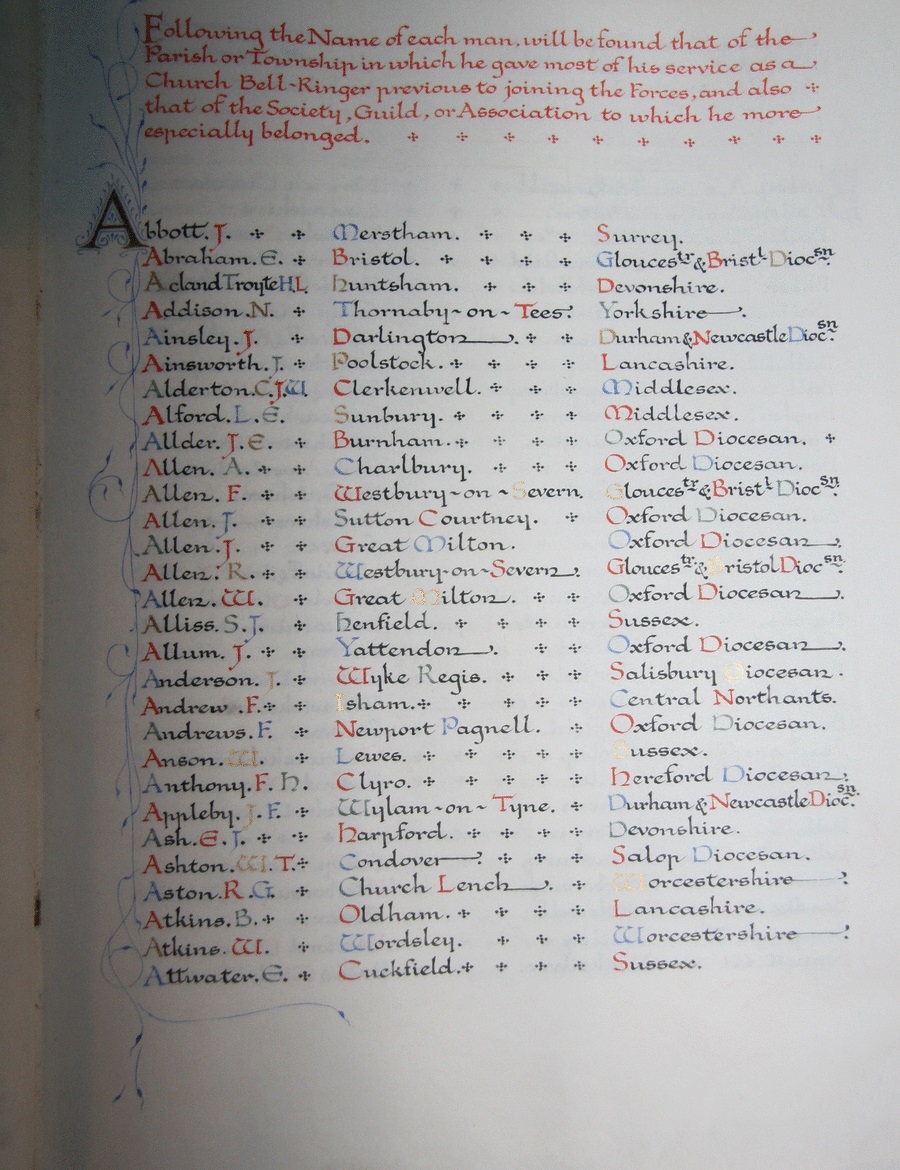 Following the Name of each man, will be found that of the
Parish or Township in which he gave most of his service as a
Church Bell-Ringer previous to joining the Forces, and also
that of the Society, Guild, or Association to which he more
especially belonged.
Abbott. J. Merstham. Surrey.
Abraham. E. Bristol. Glouces^tr & Brist^l Dioc^sn.
Acland Troyte H.L. Huntsham. Devonshire.
Addison. N. Thornaby-on-Tees. Yorkshire.
Ainsley. J. Darlington. Durham & Newcastle Dioc^sn.
Ainsworth. J. Poolstock. Lancashire.
Alderton. C.J.W. Clerkenwell. Middlesex.
Alford. L. E. Sunbury. Middlesex.
Allder. J. E. Burnham. Oxford Diocesan.
Allen. A. Charlbury. Oxford Diocesan.
Allen. F. Westbury-on-Severn. Glouces^tr & Brist^l Dioc^sn.
Allen. J. Sutton Courtney. Oxford Diocesan.
Allen. J. Great Milton. Oxford Diocesan.
Allen. R. Westbury-on-Severn. Glouces^tr & Bristol Dioc^sn.
Allen. W. Great Milton. Oxford Diocesan.
Alliss. S. J. Henfield. Sussex.
Allum. J. Yattendon. Oxford Diocesan.
Anderson. J. Wyke Regis. Salisbury Diocesan.
Andrew. F. Isham. Central Northants.
Andrews. F. Newport Pagnell. Oxford Diocesan.
Anson. W. Lewes. Sussex.
Anthony. F. H. Clyro. Hereford Diocesan.
Appleby. J. F. Wylam-on-Tyne. Durham & Newcastle Dioc^sn.
Ash. E. J. Harpford. Devonshire.
Ashton. W. T. Condover. Salop Diocesan.
Aston. R. G. Church Lench. Worcestershire.
Atkins. B. Oldham. Lancashire.
Atkins. W. Wordsley. Worcestershire.
Attwater. E. Cuckfield. Sussex.